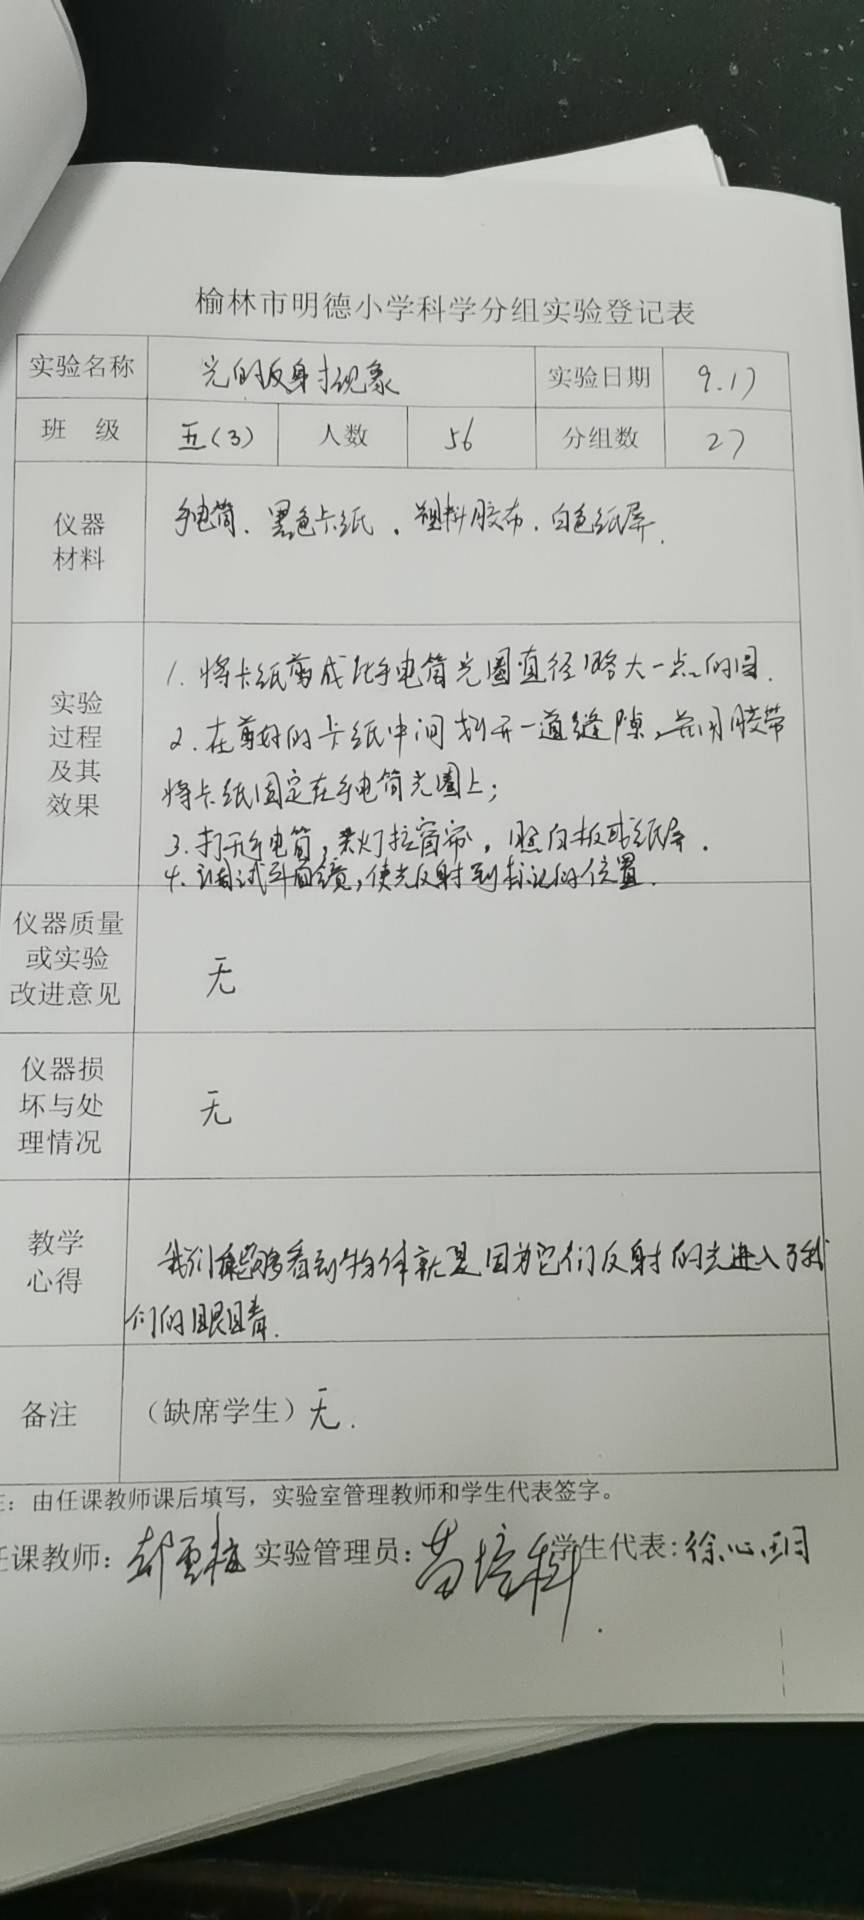 榆林市明德小学科学分组实验登记表
实验名称 光的反射现象 实验日期 9.17
班 级 五(3) 人数 56 分组数 27
仪器
材料
手电筒、黑色卡纸、塑料胶布、白色纸屏.
实验
过程
及其
效果
1. 将卡纸剪成比手电筒光圈直径略大一点的圆.
2. 在剪好的卡纸中间划开一道缝隙,并用胶带
将卡纸固定在手电筒光圈上;
3. 打开手电筒,关灯拉窗帘,照白板或纸屏.
4. 调试平面镜,使光反射到标记的位置.
仪器质量
或实验
改进意见
无
仪器损
坏与处
理情况
无
教学
心得
我们能够看到物体就是因为它们反射的光进入了我
们的眼睛.
备注 (缺席学生)无.
注:由任课教师课后填写,实验室管理教师和学生代表签字。
任课教师: 实验管理员: 苗培科 学生代表:徐心玥